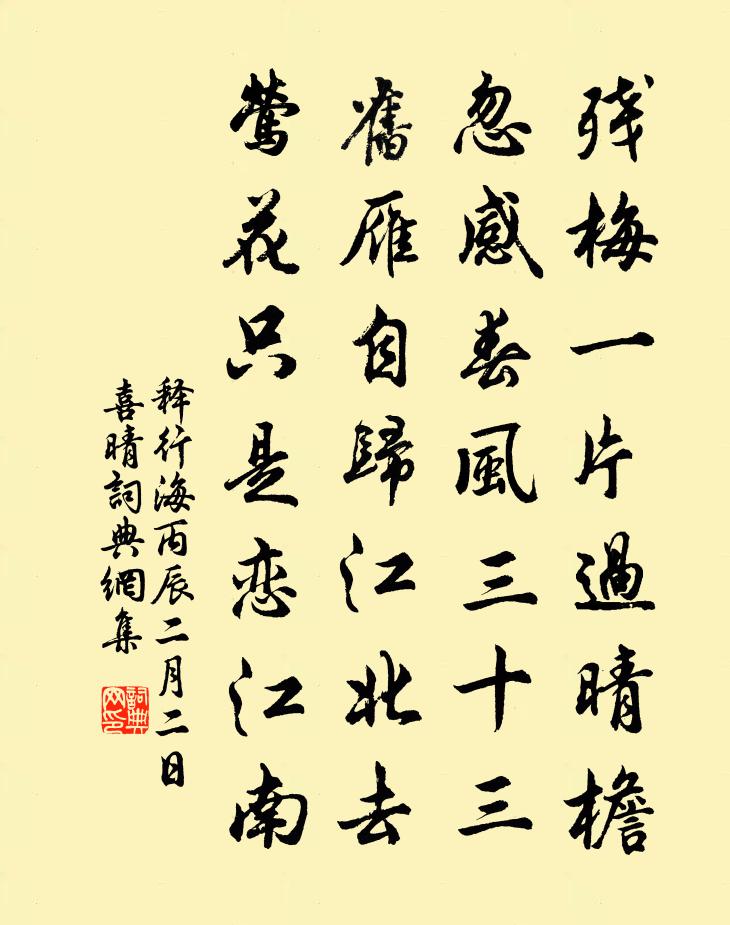 残梅一片過晴檐
忽感春風三十三
舊雁自歸江北去
莺花只是恋江南
释行海丙辰二月二日
喜晴詞典網集
詞典网印